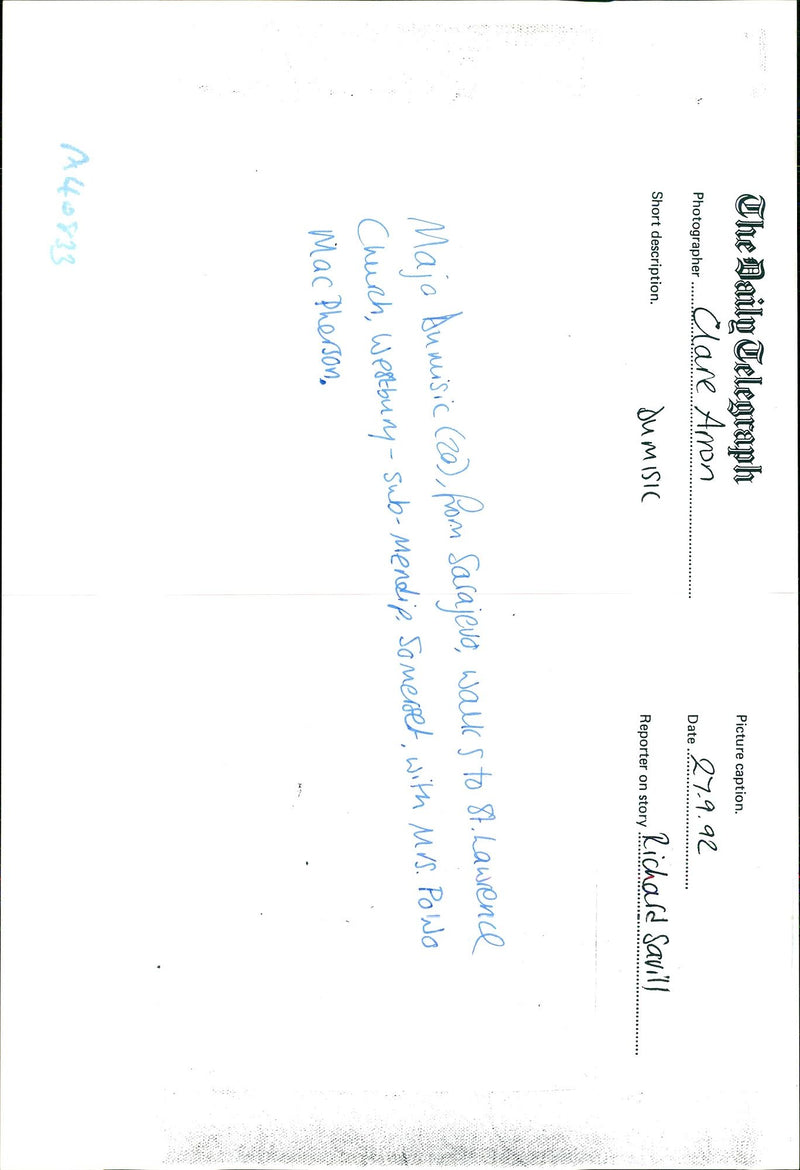 The Daily Telegraph
Picture caption.
Photographer Clare Arron
Date 27.9.92
Short description. DUMISIC
Reporter on story Richard Savill
Maja Dumisic (20), from Sarajevo, walks to St. Lawrence
Church, Westbury-sub-Mendip, Somerset, with Mrs.
MacPherson.
M40833